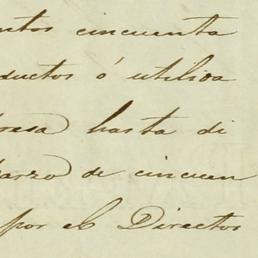 entos cincuenta
ductos ó utilisa
resa hasta di
arzo de cincuen
por el Director